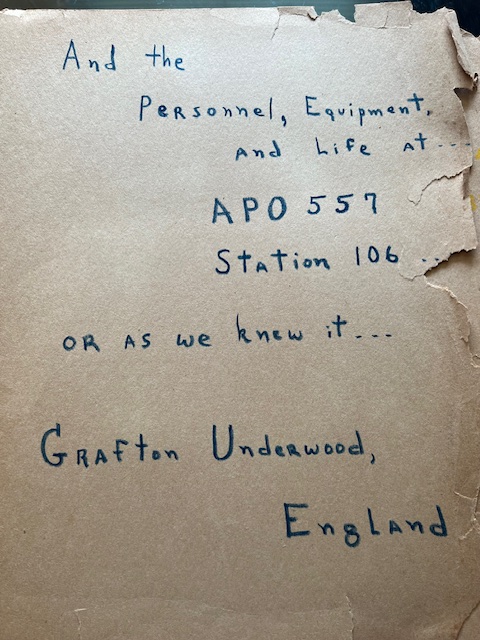 And the
Personnel, Equipment,
and Life at...
APO 557
Station 106 ..
or as we knew it...
Grafton Underwood,
England